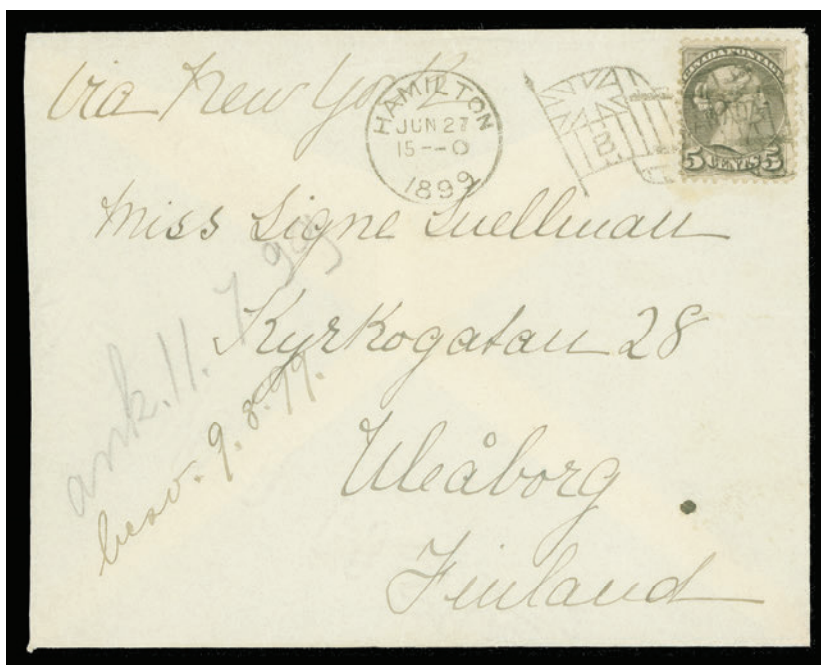 via New York
HAMILTON
JUN 27
15--0
1899
B
CANADA POSTAGE
5 CENTS 5
Miss Signe Snellman
Kyrkogatan 28
Uleåborg
Finland
ank. 11. 7. 99
besv. 9. 8. 99.